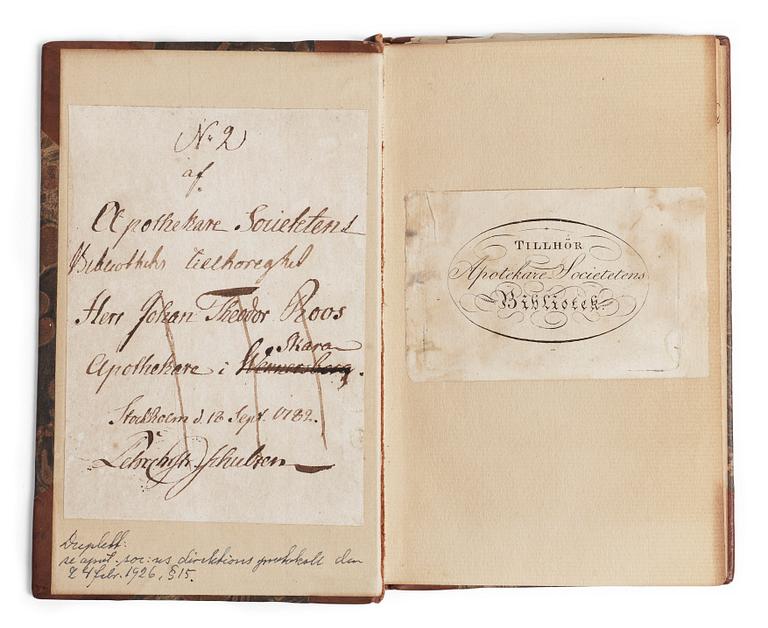 No 2
af
Apothekare Societetens
Bibliotheks tillhöreghet
Herr Johan Theodor Roos
Skara
Apothekare i Wenersborg.
Stockholm d. 18 Sept. 1782.
Schulzen
Duplett:
se apot. soc:ns direktions protokoll den
24 febr. 1926, § 15.
TILLHÖR
Apotekare Societetens
Bibliotek.